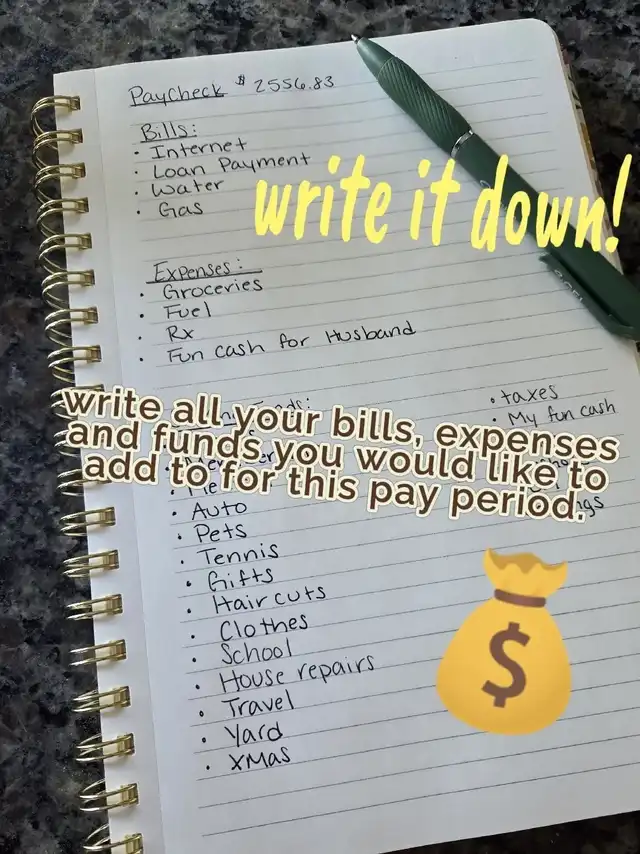 PayCheck $ 2556.83
Bills:
• Internet
• Loan Payment
• Water
• Gas
write it down!
Expenses:
• Groceries
• Fuel
• Rx
• Fun cash for Husband
• taxes
• My fun cash
write all your bills, expenses
and funds you would like to
add to for this pay period.
• Auto
• Pets
• Tennis
• Gifts
• Hair cuts
• Clothes
• School
• House repairs
• Travel
• Yard
• XMas
$